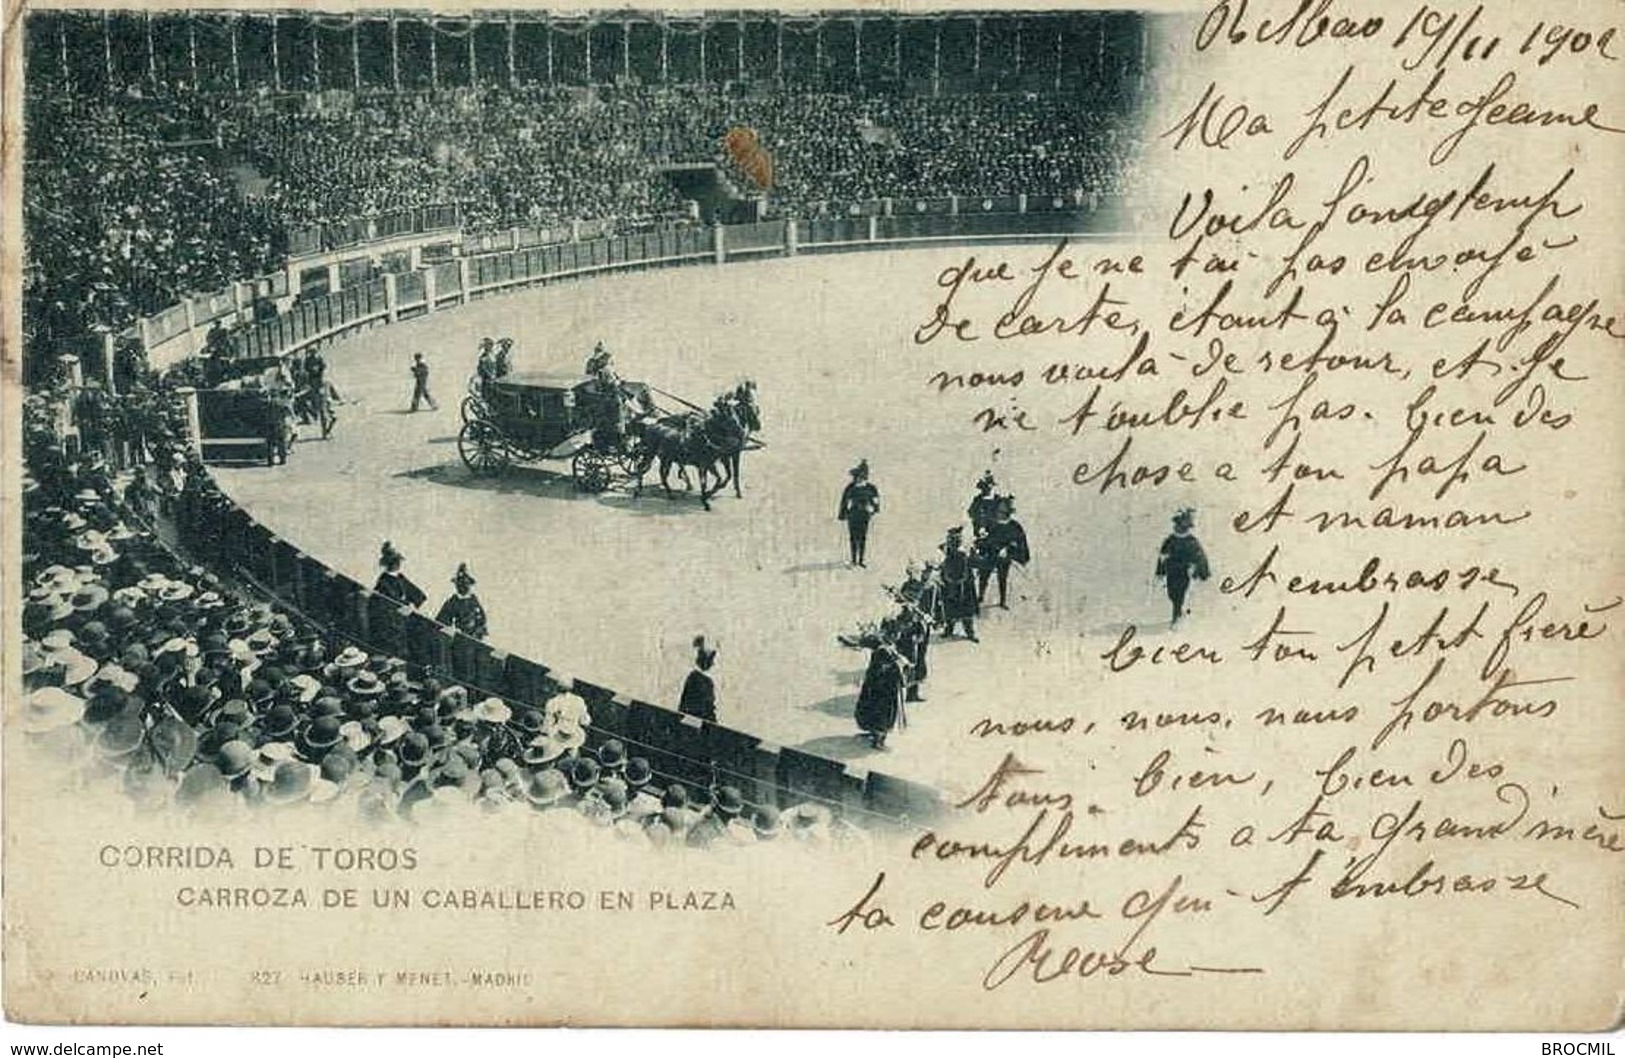 Bilbao 19/11 1902
Ma petite Jeanne
Voila longtemp
que je ne tai pas envoyé
de carte, étant à la campagne
nous voilà de retour, et je
ne t'oublie pas. bien des
chose a ton papa
et maman
et embrasse
bien ton petit frère
nous, nous, nous portons
tous bien, bien des
compliments a ta grand mère
ta cousine qui t'embrasse
CORRIDA DE TOROS
CARROZA DE UN CABALLERO EN PLAZA
CANOVAS, Fot. 827 HAUSER Y MENET.-MADRID
www.delcampe.net
BROCMIL